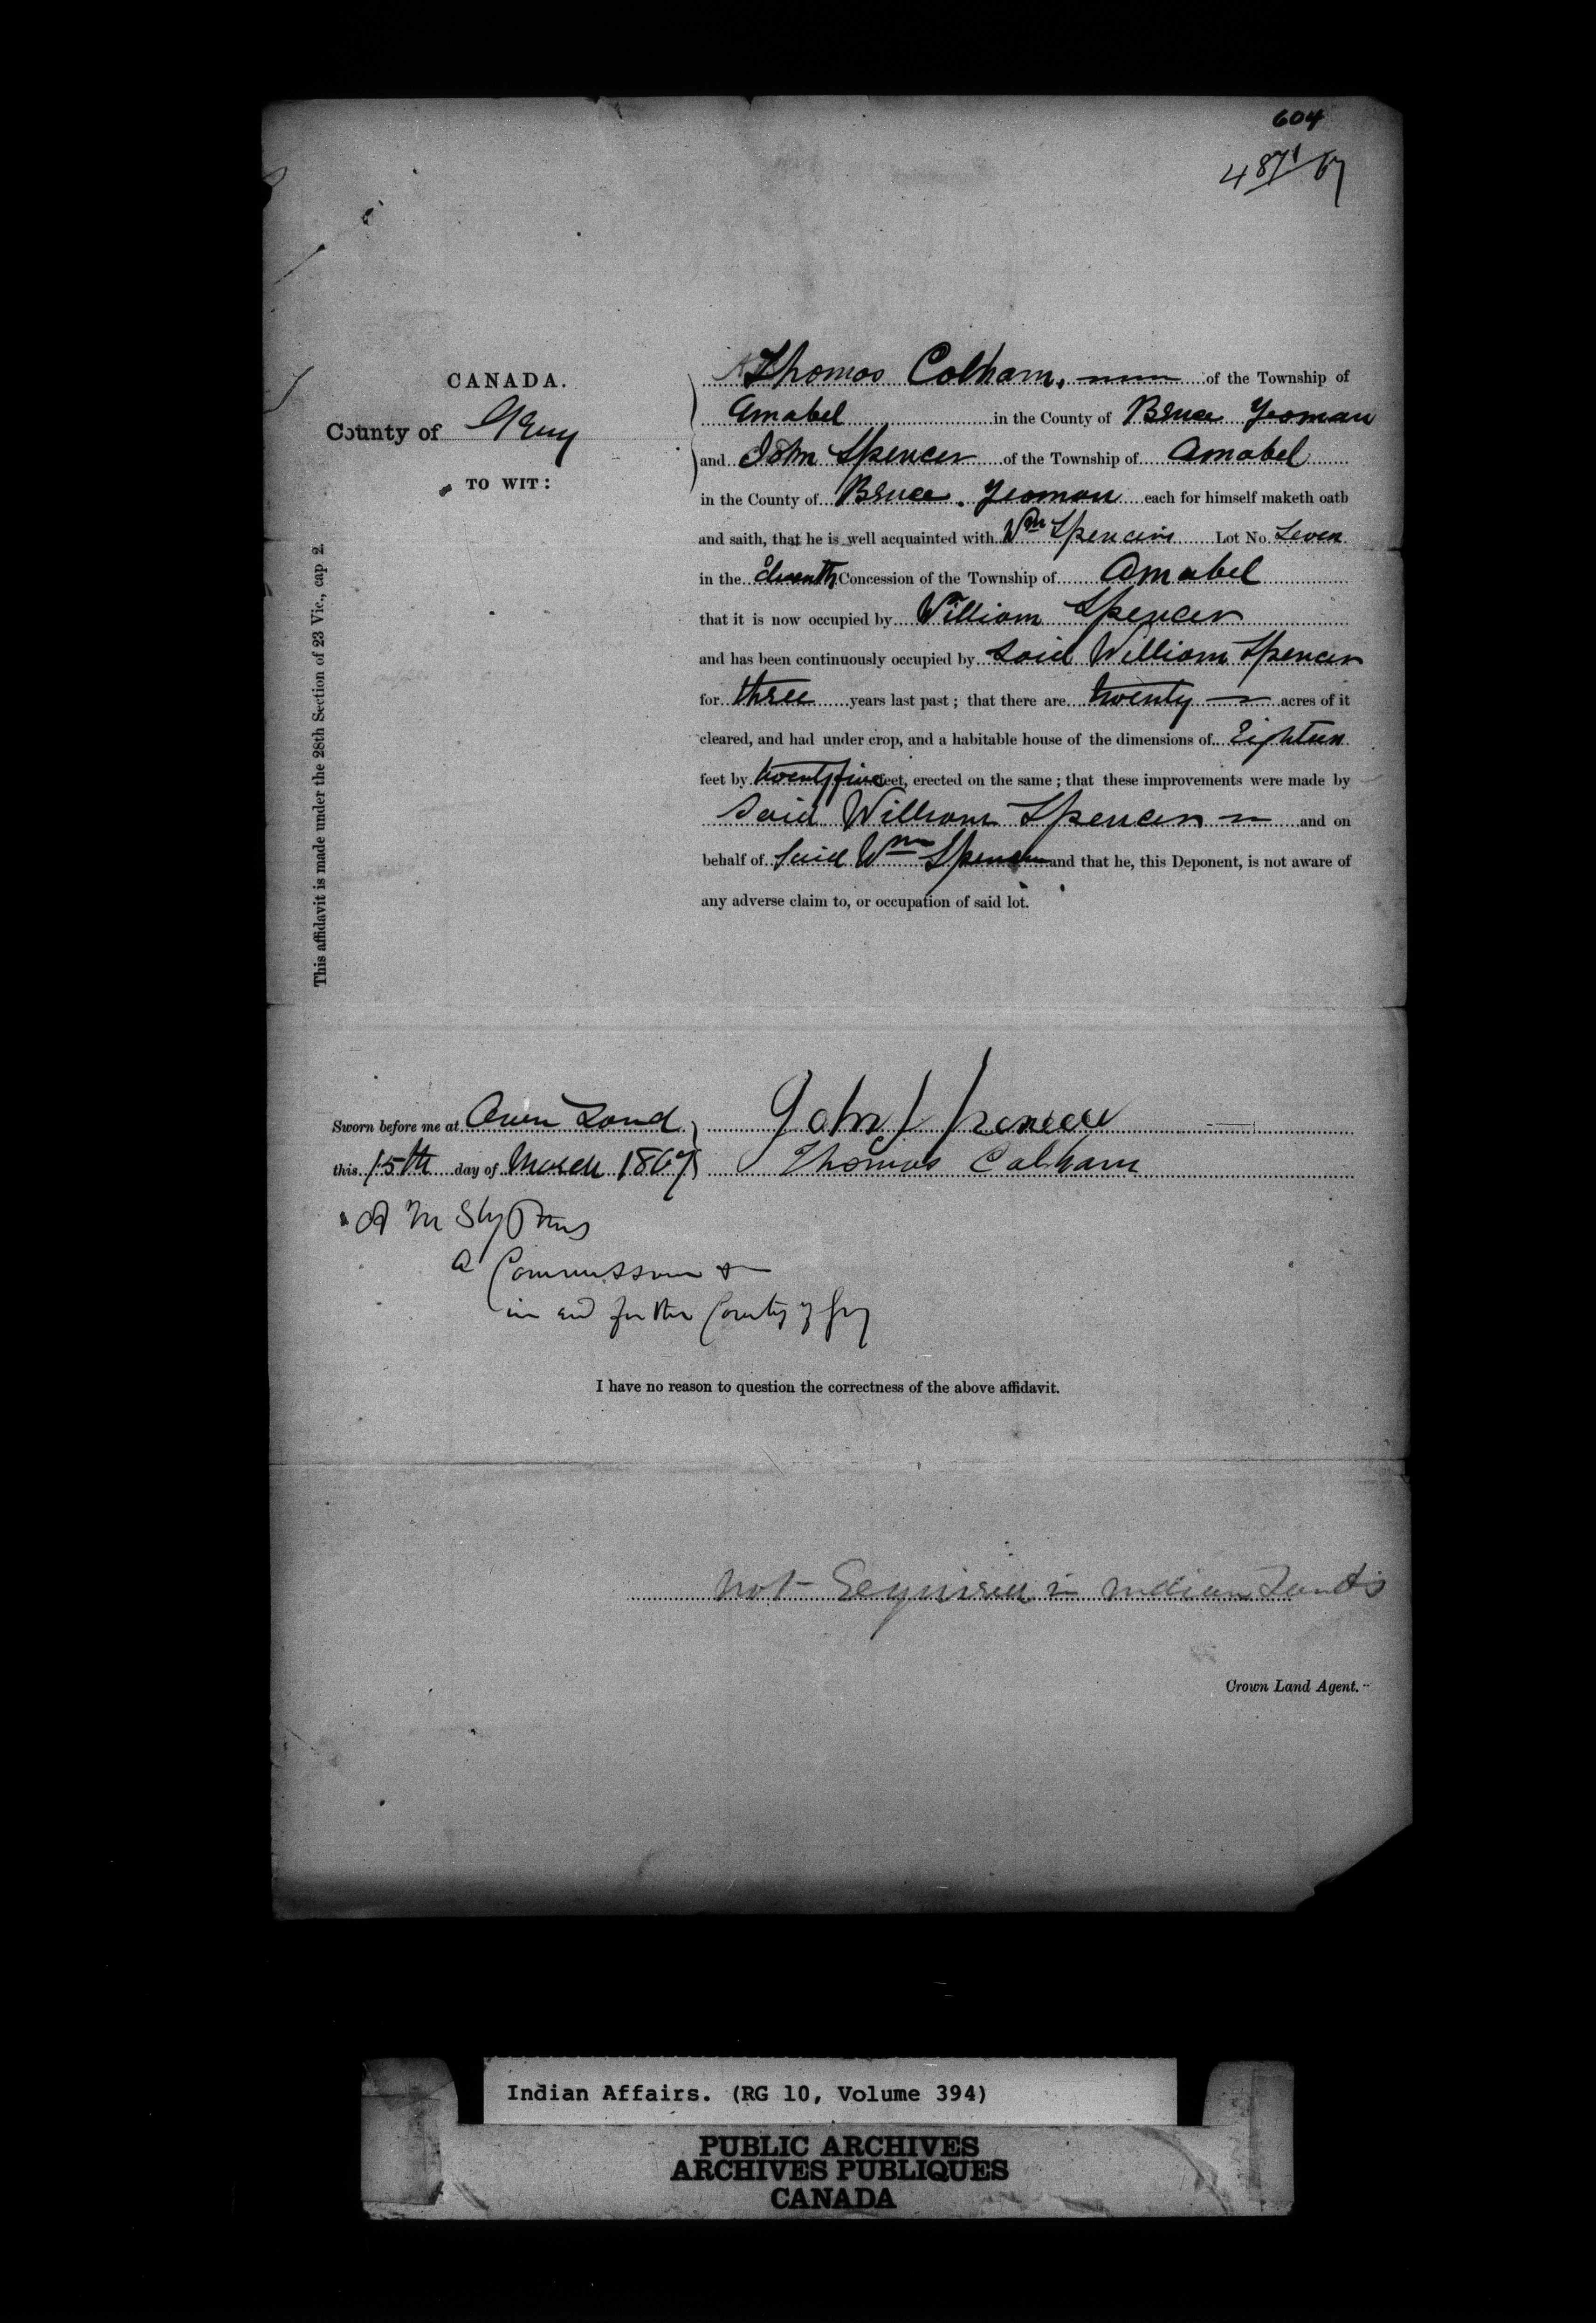 604
487/67
CANADA.
County of Grey
TO WIT:
This affidavit is made under the 28th Section of 23 Vic., cap 2.
Thomas Colham, of the Township of
Amabel in the County of Bruce Yeoman
and John Spencer of the Township of Amabel
in the County of Bruce. Yeoman each for himself maketh oath
and saith, that he is well acquainted with Wm Spencers Lot No. Seven
in the Eleventh Concession of the Township of Amabel
that it is now occupied by William Spencer
and has been continuously occupied by said William Spencer
for three years last past; that there are twenty acres of it
cleared, and had under crop, and a habitable house of the dimensions of Eighteen
feet by twenty five feet, erected on the same; that these improvements were made by
said William Spencer and on
behalf of said Wm Spencer and that he, this Deponent, is not aware of
any adverse claim to, or occupation of said lot.
Sworn before me at Owen Sound John Spencer
this 15th day of March 1867 Thomas Colham
A M Stephens
a Commissioner &
in and for the County of Grey
I have no reason to question the correctness of the above affidavit.
Not Required in Indian Lands
Crown Land Agent.
Indian Affairs. (RG 10, Volume 394)
PUBLIC ARCHIVES
ARCHIVES PUBLIQUES
CANADA